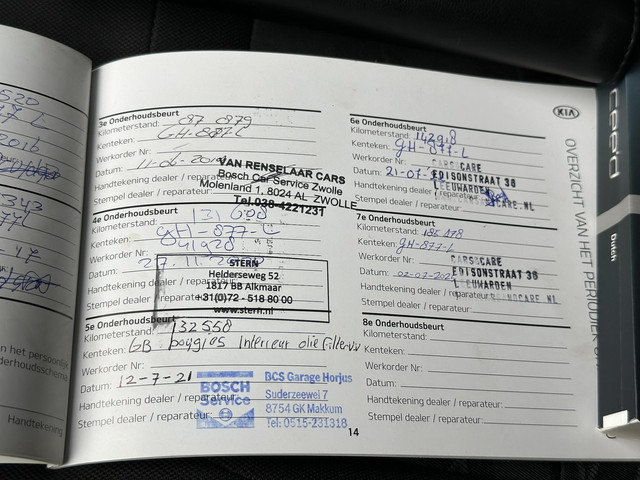 3e Onderhoudsbeurt
Kilometerstand: 087 0879
Kenteken: GH-877-L
Werkorder Nr:
Datum: 11-06-20
Handtekening dealer / reparateur
Stempel dealer / reparateur
VAN RENSELAAR CARS
Bosch Car Service Zwolle
Molenland 1, 8024 AL ZWOLLE
Tel.038-4221231
4e Onderhoudsbeurt
Kilometerstand: 131 600
Kenteken: GH-877-L
Werkorder Nr: 41920
Datum:
Handtekening dealer / reparateur
Stempel dealer / reparateur
STERN
Helderseweg 52
1817 BB Alkmaar
+31(0)72 - 518 80 00
www.stern.nl
5e Onderhoudsbeurt
Kilometerstand: 132558
Kenteken: GB bougies Interieur olie Filter
Werkorder Nr:
Datum: 12-7-21
Handtekening dealer / reparateur
Stempel dealer / reparateur
BOSCH
Service
BCS Garage Horjus
Suderzeewei 7
8754 GK Makkum
Tel: 0515-231318
14
6e Onderhoudsbeurt
Kilometerstand: 142918
Kenteken: GH-877-L
Werkorder Nr:
Datum: 21-07-
Handtekening dealer
Stempel dealer / reparateur
CARS&CARE
EDISONSTRAAT 36
LEEUWARDEN
CARE.NL
7e Onderhoudsbeurt
Kilometerstand:
Kenteken: GH-877-L
Werkorder Nr:
Datum: 02-07-20
Handtekening dealer / reparateur
Stempel dealer / reparateur
CARS&CARE
EDISONSTRAAT 36
LEEUWARDEN
CARE.NL
8e Onderhoudsbeurt
Kilometerstand:
Kenteken:
Werkorder Nr:
Datum:
Handtekening dealer / reparateur:
Stempel dealer / reparateur:
KIA
OVERZICHT VAN HET PERIODIEK
cee'd
Dutch
2016
343
n het persoonlijk
derhoudsschema
Handtekening